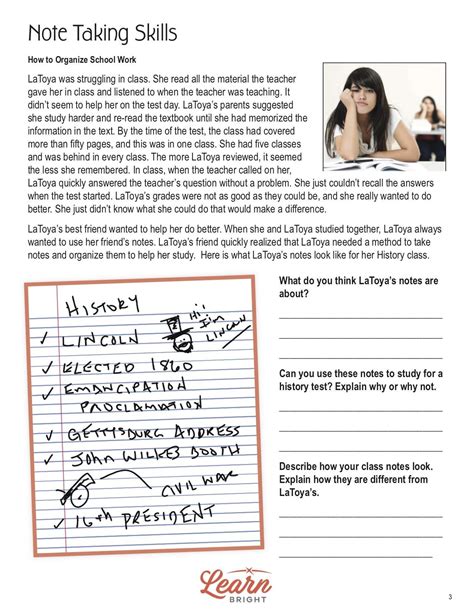 Note Taking Skills
How to Organize School Work
LaToya was struggling in class. She read all the material the teacher
gave her in class and listened to when the teacher was teaching. It
didn't seem to help her on the test day. LaToya's parents suggested
she study harder and re-read the textbook until she had memorized the
information in the text. By the time of the test, the class had covered
more than fifty pages, and this was in one class. She had five classes
and was behind in every class. The more LaToya reviewed, it seemed
the less she remembered. In class, when the teacher called on her,
LaToya quickly answered the teacher's question without a problem. She just couldn't recall the answers
when the test started. LaToya's grades were not as good as they could be, and she really wanted to do
better. She just didn't know what she could do that would make a difference.
LaToya's best friend wanted to help her do better. When she and LaToya studied together, LaToya always
wanted to use her friend's notes. LaToya's friend quickly realized that LaToya needed a method to take
notes and organize them to help her study. Here is what LaToya's notes look like for her History class.
HISTORY
Hi
I'm
LINCOLN
✓ LINCOLN
✓ ELECTED 1860
✓ EMANCIPATION
PROCLAMATION
✓ GETTYSBURG ADDRESS
✓ JOHN WILKES BOOTH
CIVIL WAR
✓ 16th PRESIDENT
What do you think LaToya's notes are
about?
Can you use these notes to study for a
history test? Explain why or why not.
Describe how your class notes look.
Explain how they are different from
LaToya's.
Learn
BRIGHT
3